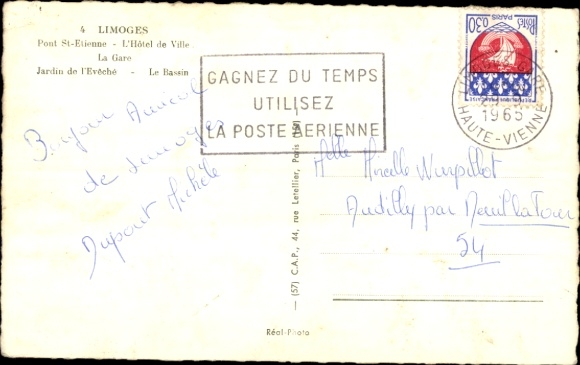 4 LIMOGES
Pont St-Etienne - L'Hôtel de Ville
La Gare
Jardin de l'Evêché - Le Bassin
GAGNEZ DU TEMPS
UTILISEZ
LA POSTE AERIENNE
0.30 Postes
PARIS
REPUBLIQUE FRANCAISE
1965
HAUTE-VIENNE
Bonjour Amical
de Limoges
Dupont Michèle
Melle Mireille
Audilly par
54
(57) C.A.P., 44, rue Letellier, Paris
Réal-Photo